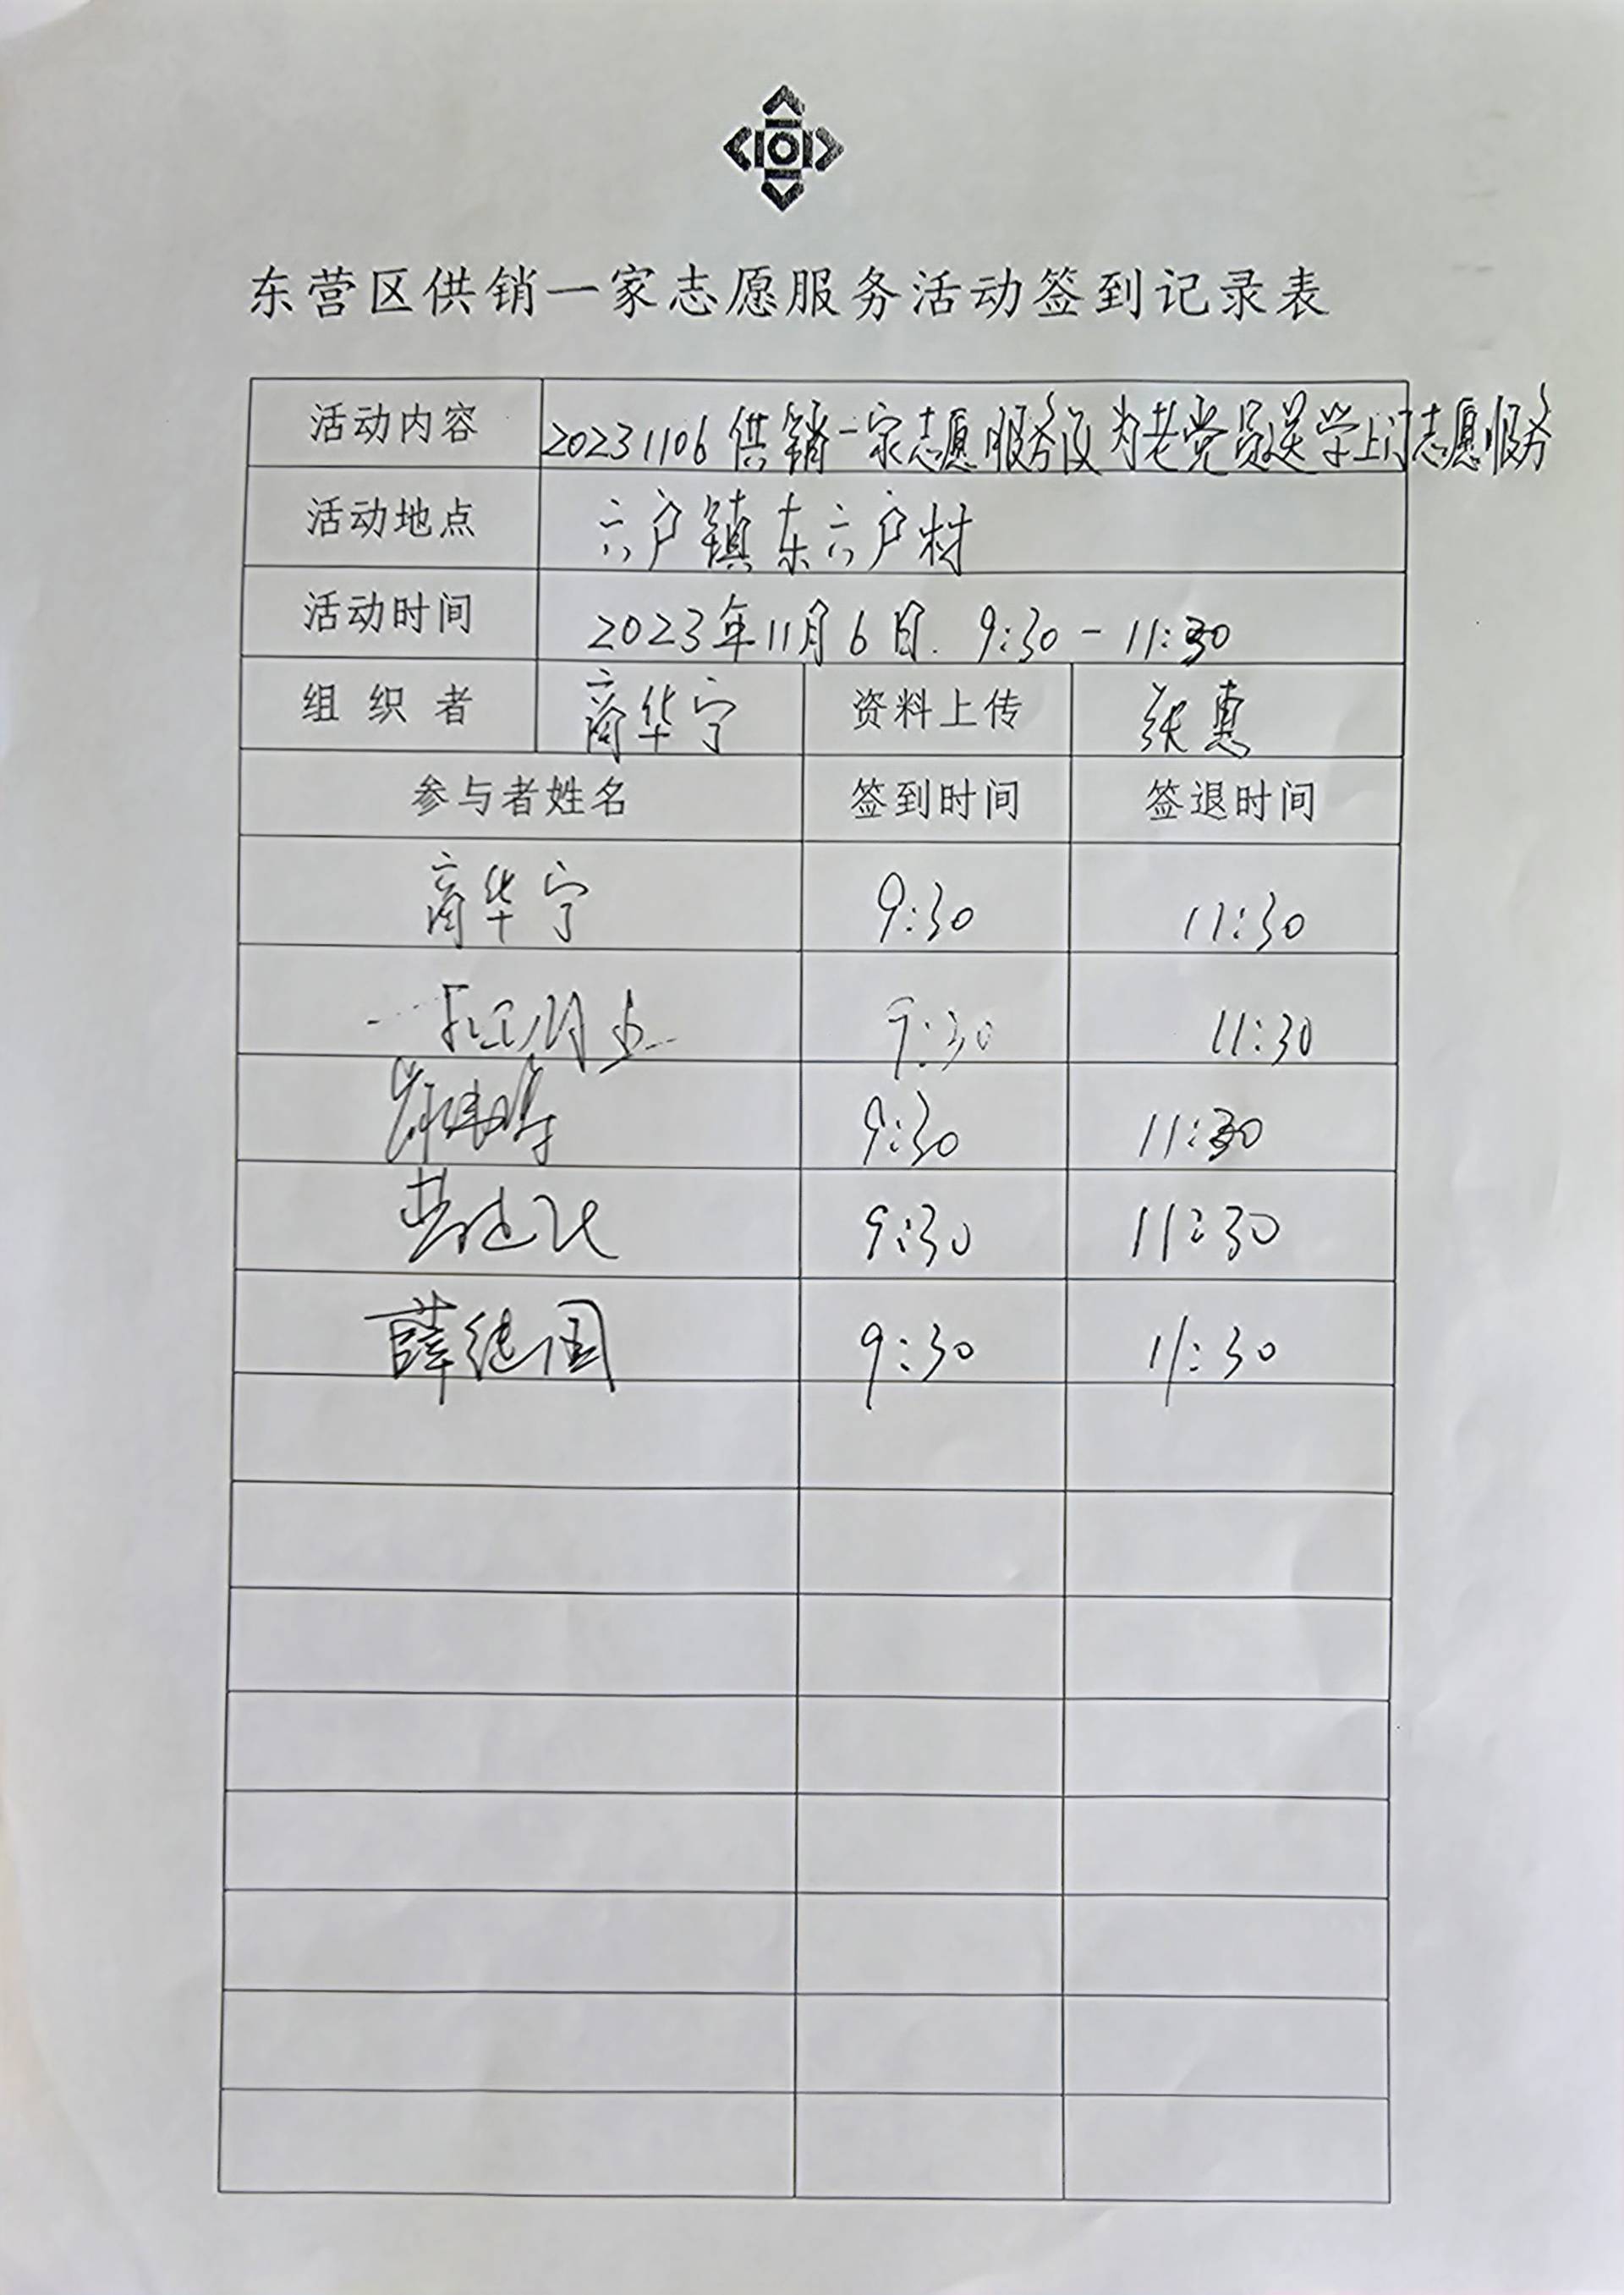 东营区供销一家志愿服务活动签到记录表
活动内容 20231106供销一家志愿服务队为老党员送学上门志愿服务
活动地点 六户镇东六户村
活动时间 2023年11月6日. 9:30-11:30
组织者 商华宁 资料上传 张惠
参与者姓名 签到时间 签退时间
商华宁 9:30 11:30
9:30 11:30
9:30 11:30
9:30 11:30
薛继国 9:30 11:30